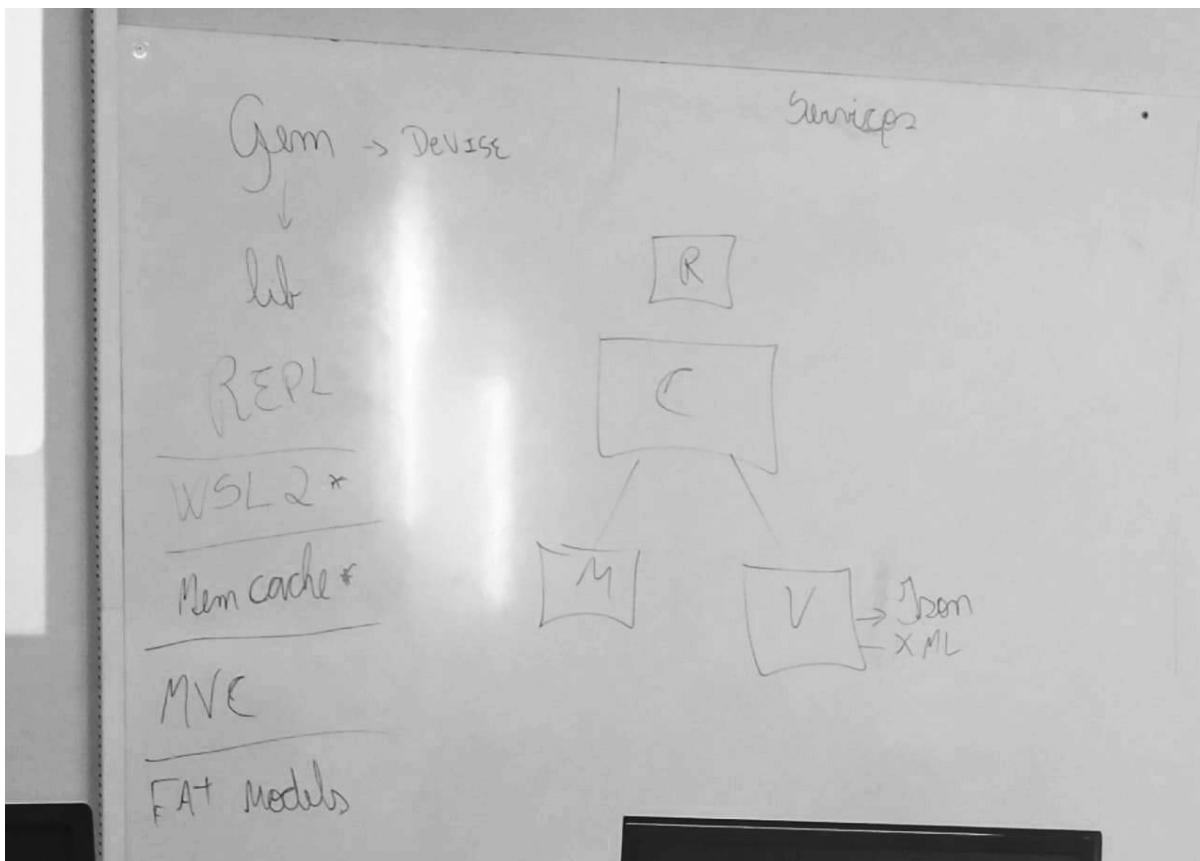 Gem → DeVISE
↓
lib
REPL
WSL2*
Mem cache*
MVC
FAt Models
Serviços
R
C
M
V
→ Json
XML